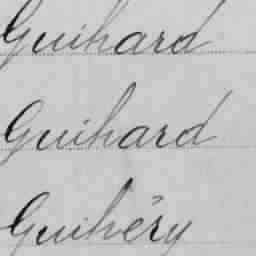 Guihard
Guihard
Guihéry